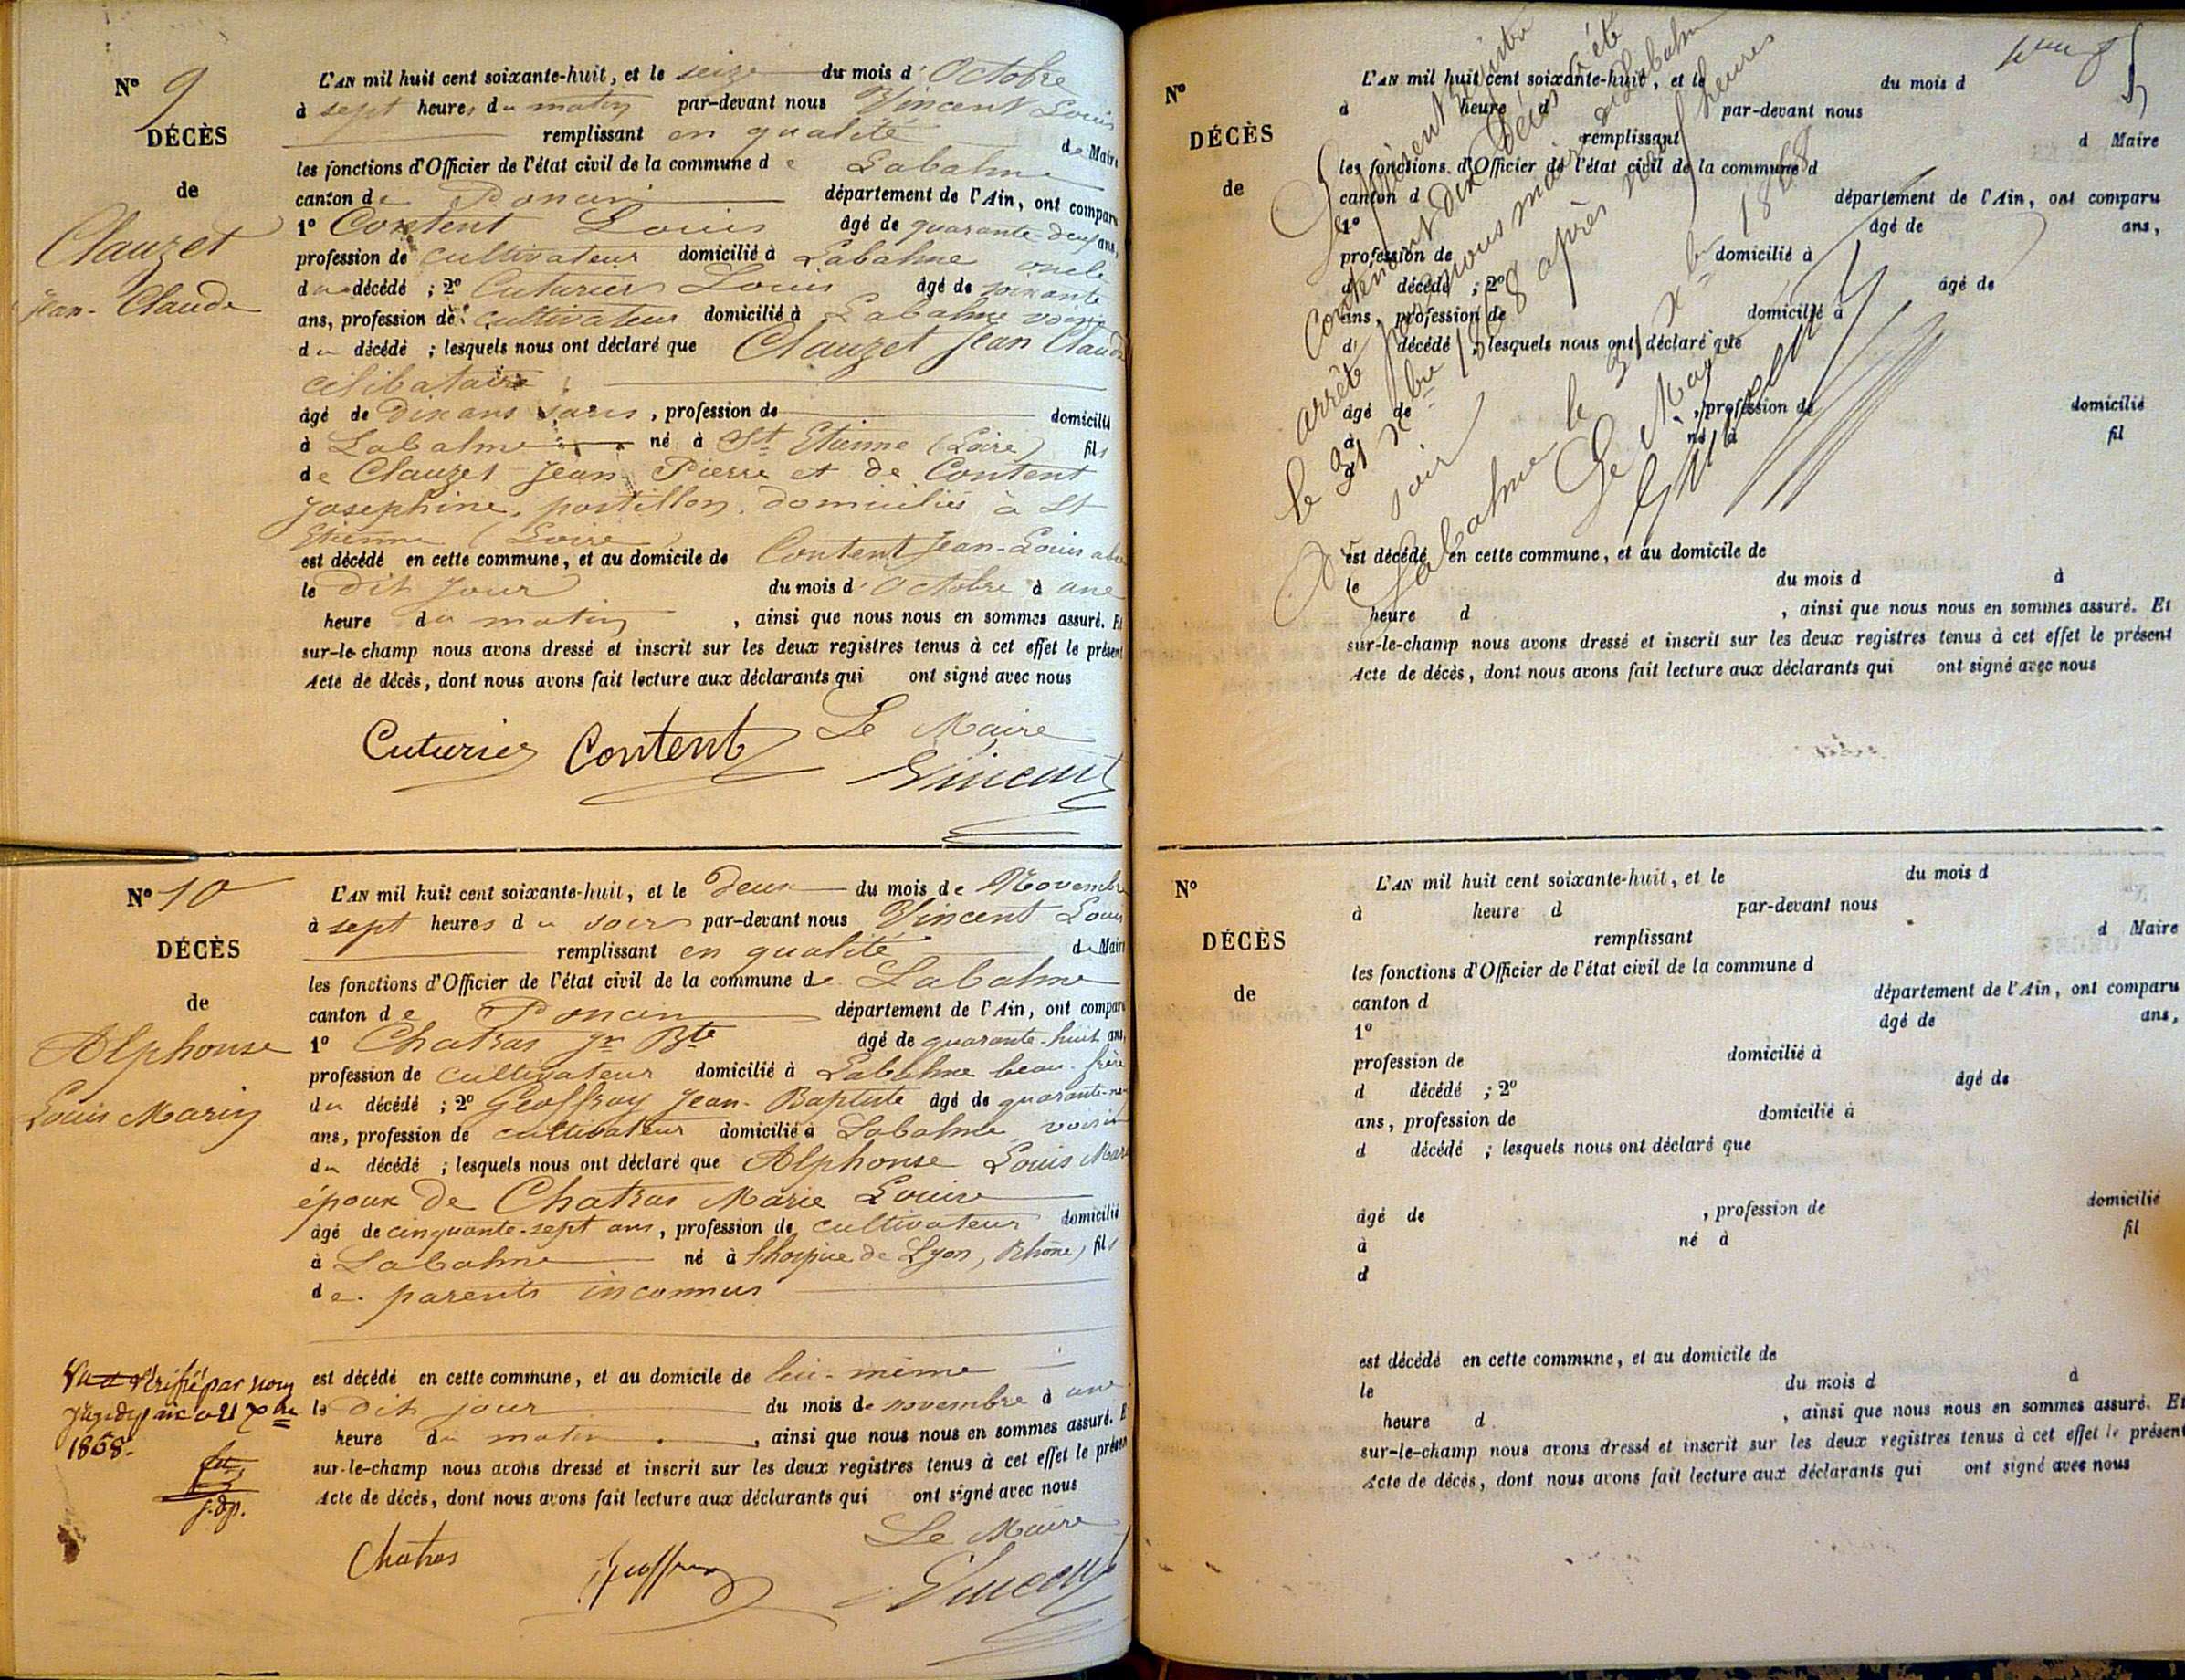 N° 9
DÉCÈS
de
Clauzet
Jean-Claude
L'AN mil huit cent soixante-huit, et le seize du mois d'Octobre
à sept heures du matin par-devant nous Vincent Louis
remplissant en qualité de Maire
les fonctions d'Officier de l'état civil de la commune de Labalme
canton de Poncin département de l'Ain, ont comparu
1° Content Louis âgé de quarante-deux ans,
profession de cultivateur domicilié à Labalme oncle
du décédé ; 2° Cuturier Louis âgé de soixante
ans, profession de cultivateur domicilié à Labalme voisin
du décédé ; lesquels nous ont déclaré que Clauzet Jean Claude
célibataire
âgé de dix ans, profession de domicilié
à Labalme né à St Etienne (Loire) fils
de Clauzet Jean Pierre et de Content
Josephine, postillon, domiciliés à St
Etienne (Loire)
est décédé en cette commune, et au domicile de Content Jean-Louis
le dit jour du mois d'Octobre à une
heure du matin, ainsi que nous nous en sommes assuré. Et
sur-le-champ nous avons dressé et inscrit sur les deux registres tenus à cet effet le présent
Acte de décès, dont nous avons fait lecture aux déclarants qui ont signé avec nous
Le Maire
Cuturier Content Vincent
N° 10
DÉCÈS
de
Alphonse
Louis Marin
L'AN mil huit cent soixante-huit, et le deux du mois de Novembre
à sept heures du soir par-devant nous Vincent Louis
remplissant en qualité de Maire
les fonctions d'Officier de l'état civil de la commune de Labalme
canton de Poncin département de l'Ain, ont comparu
1° Chatras Jn Bte âgé de quarante-huit ans,
profession de cultivateur domicilié à Labalme beau-frère
du décédé ; 2° Geoffray Jean-Baptiste âgé de quarante-neuf
ans, profession de cultivateur domicilié à Labalme voisin
du décédé ; lesquels nous ont déclaré que Alphonse Louis Marin
époux de Chatras Marie Louise
âgé de cinquante-sept ans, profession de cultivateur domicilié
à Labalme né à l'hospice de Lyon, (Rhône) fils
de parents inconnus
est décédé en cette commune, et au domicile de lui-même
le dit jour du mois de novembre à une
heure du matin, ainsi que nous nous en sommes assuré. Et
sur-le-champ nous avons dressé et inscrit sur les deux registres tenus à cet effet le présent
Acte de décès, dont nous avons fait lecture aux déclarants qui ont signé avec nous
Le Maire
Chatras Geoffray Vincent
Vu et vérifié par nous
1868.
N°
DÉCÈS
de
L'AN mil huit cent soixante-huit, et le du mois d
à heure d par-devant nous
remplissant d Maire
les fonctions d'Officier de l'état civil de la commune d
canton d département de l'Ain, ont comparu
1° âgé de ans,
profession de domicilié à
d décédé ; 2° âgé de
ans, profession de domicilié à
d décédé ; lesquels nous ont déclaré que
âgé de , profession de domicilié
à né à fil
d
est décédé en cette commune, et au domicile de
le du mois d à
heure d , ainsi que nous nous en sommes assuré. Et
sur-le-champ nous avons dressé et inscrit sur les deux registres tenus à cet effet le présent
Acte de décès, dont nous avons fait lecture aux déclarants qui ont signé avec nous
Le présent registre
contenant dix décès a été
arrêté par nous maire de Labalme
le 31 Xbre 1868 après neuf heures
soir
A Labalme le 31 Xbre 1868
Le Maire
N°
DÉCÈS
de
L'AN mil huit cent soixante-huit, et le du mois d
à heure d par-devant nous
remplissant d Maire
les fonctions d'Officier de l'état civil de la commune d
canton d département de l'Ain, ont comparu
1° âgé de ans,
profession de domicilié à
d décédé ; 2° âgé de
ans, profession de domicilié à
d décédé ; lesquels nous ont déclaré que
âgé de , profession de domicilié
à né à fil
d
est décédé en cette commune, et au domicile de
le du mois d à
heure d , ainsi que nous nous en sommes assuré. Et
sur-le-champ nous avons dressé et inscrit sur les deux registres tenus à cet effet le présent
Acte de décès, dont nous avons fait lecture aux déclarants qui ont signé avec nous